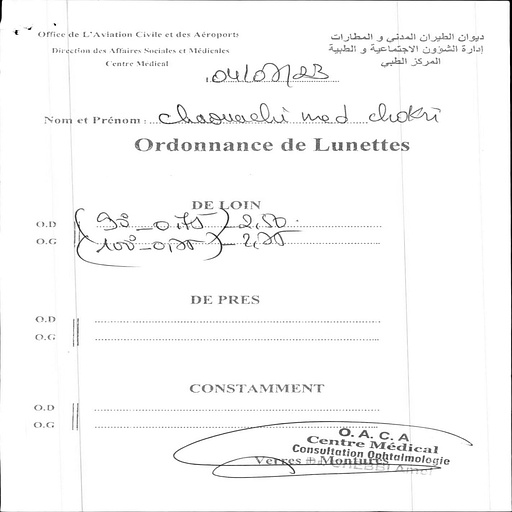 Office de L'Aviation Civile et des Aéroports
Direction des Affaires Sociales et Médicales
Centre Medical
ديوان الطيران المدني و المطارات
إدارة الشؤون الاجتماعية و الطبية
المركز الطبي
04/07/23
Nom et Prénom : Chaouachi med chokri
Ordonnance de Lunettes
DE LOIN
O.D (90° -0,75) -2,50
O.G (100° -0,75) -2,75
DE PRES
O.D
O.G
CONSTAMMENT
O.D
O.G
O. A. C. A
Centre Médical
Consultation Ophtalmologie
Verres + Montures